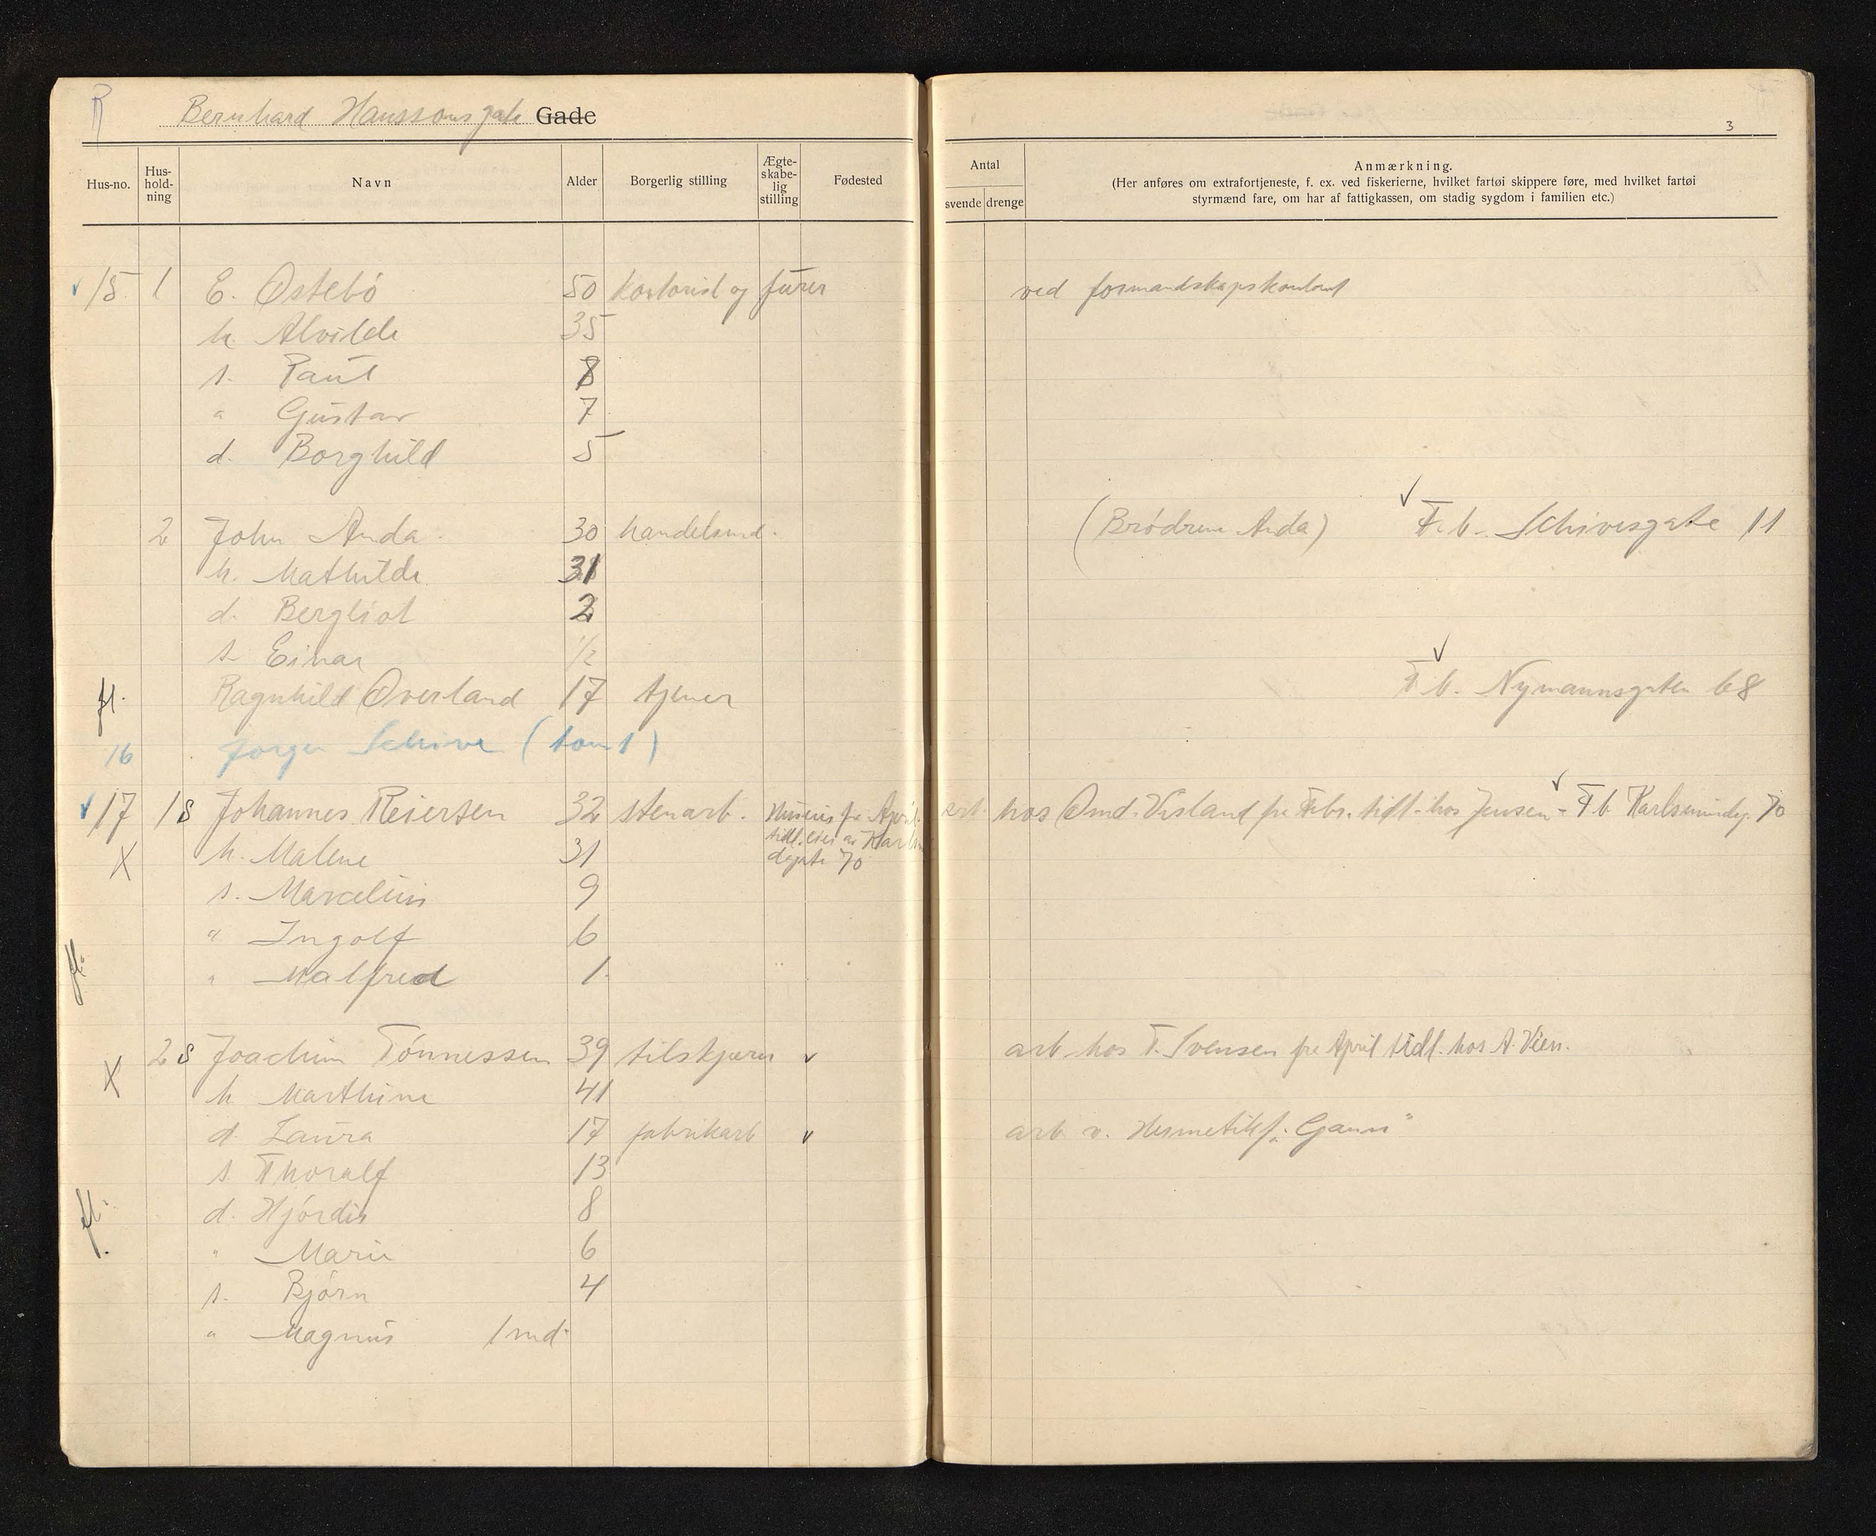 R Bernhard Hanssonsgate Gade
3
Hus-no. Hus-hold-ning Navn Alder Borgerlig stilling Ægte-skabe-lig stilling Fødested
Antal svende drenge
Anmærkning.
(Her anføres om extrafortjeneste, f. ex. ved fiskerierne, hvilket fartøi skippere føre, med hvilket fartøi
styrmænd fare, om har af fattigkassen, om stadig sygdom i familien etc.)
15 1 E. Østebö 50 kontorist og furer ved formandskapskontoret
h Alvilde 35
s. Paul 8
" Gustav 7
d. Borghild 5
2 John Anda 30 handelsmd. (Brödrene Anda) F.b. Schivesgate 11
h. Mathilde 31
d. Bergliot 2
s Einar 1/2
fl. Ragnhild Overland 17 tjener F.b. Nymannsgaten 68
16 Jörgen Schive (tomt)
17 1 S Johannes Reiersen 32 stenarb. Huseier fra April arb. hos Omd. Visland fra Febr. tidl. hos Jensen - F.b. Karlsmindeg. 70
X h. Malene 31 tidl. eier av Karlsmin
degate 70
s. Marcelius 9
" Ingolf 6
fl. " Malfred 1
2 S Joachim Tönnessen 39 tilskjærer v arb. hos T. Svensen fra April tidl. hos A. Vien.
X h Marthine 41
d. Laura 17 fabrikarb v arb v. Hermetikf. "Gann"
s. Thoralf 13
fl. d. Hjördis 8
" Marie 6
s. Bjørn 4
" Magnus 1 md.